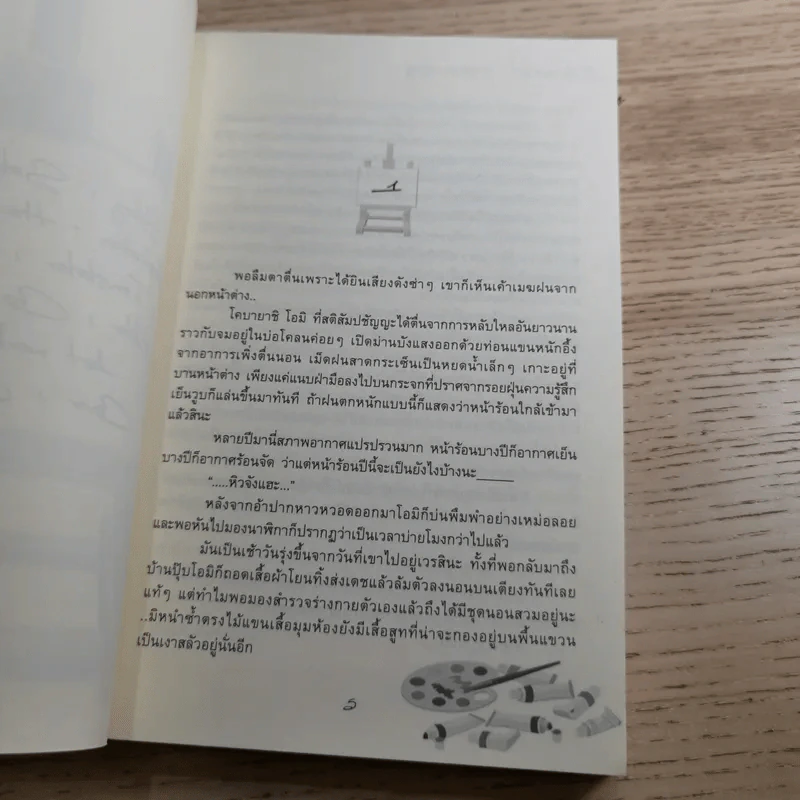 1
พอลืมตาตื่นเพราะได้ยินเสียงดังซ่าๆ เขาก็เห็นเค้าเมฆฝนจาก
นอกหน้าต่าง..
โคบายาชิ โอมิ ที่สติสัมปชัญญะได้ตื่นจากการหลับใหลอันยาวนาน
ราวกับจมอยู่ในบ่อโคลนค่อยๆ เปิดม่านบังแสงออกด้วยท่อนแขนหนักอึ้ง
จากอาการเพิ่งตื่นนอน เม็ดฝนสาดกระเซ็นเป็นหยดน้ำเล็กๆ เกาะอยู่ที่
บานหน้าต่าง เพียงแค่แนบฝ่ามือลงไปบนกระจกที่ปราศจากรอยฝุ่นความรู้สึก
เย็นวูบก็แล่นขึ้นมาทันที ถ้าฝนตกหนักแบบนี้ก็แสดงว่าหน้าร้อนใกล้เข้ามา
แล้วสินะ
หลายปีมานี่สภาพอากาศแปรปรวนมาก หน้าร้อนบางปีก็อากาศเย็น
บางปีก็อากาศร้อนจัด ว่าแต่หน้าร้อนปีนี้จะเป็นยังไงบ้างนะ_____
".....หิวจังแฮะ..."
หลังจากอ้าปากหาวหวอดออกมาโอมิก็บ่นพึมพำอย่างเหม่อลอย
และพอหันไปมองนาฬิกาก็ปรากฏว่าเป็นเวลาบ่ายโมงกว่าไปแล้ว
มันเป็นเช้าวันรุ่งขึ้นจากวันที่เขาไปอยู่เวรสินะ ทั้งที่พอกลับมาถึง
บ้านปุ๊บโอมิก็ถอดเสื้อผ้าโยนทิ้งส่งเดชแล้วล้มตัวลงนอนบนเตียงทันทีเลย
แท้ๆ แต่ทำไมพอมองสำรวจร่างกายตัวเองแล้วถึงได้มีชุดนอนสวมอยู่นะ
..มิหนำซ้ำตรงไม้แขนเสื้อมุมห้องยังมีเสื้อสูทที่น่าจะกองอยู่บนพื้นแขวน
เป็นเงาสลัวอยู่นั่นอีก
5